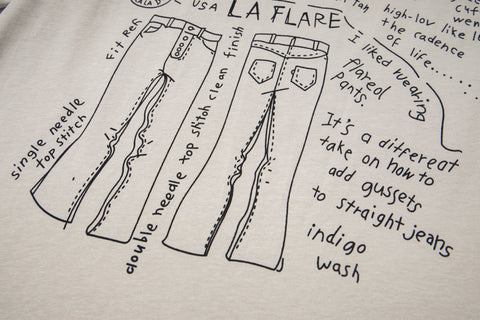 USA
LA FLARE
high-low like
the cadence
of life........
Fit Ref
I liked wearing
flared
pants.
single needle
top stitch
double needle top stitch clean finish
It's a different
take on how to
add gussets
to straight jeans
indigo
wash